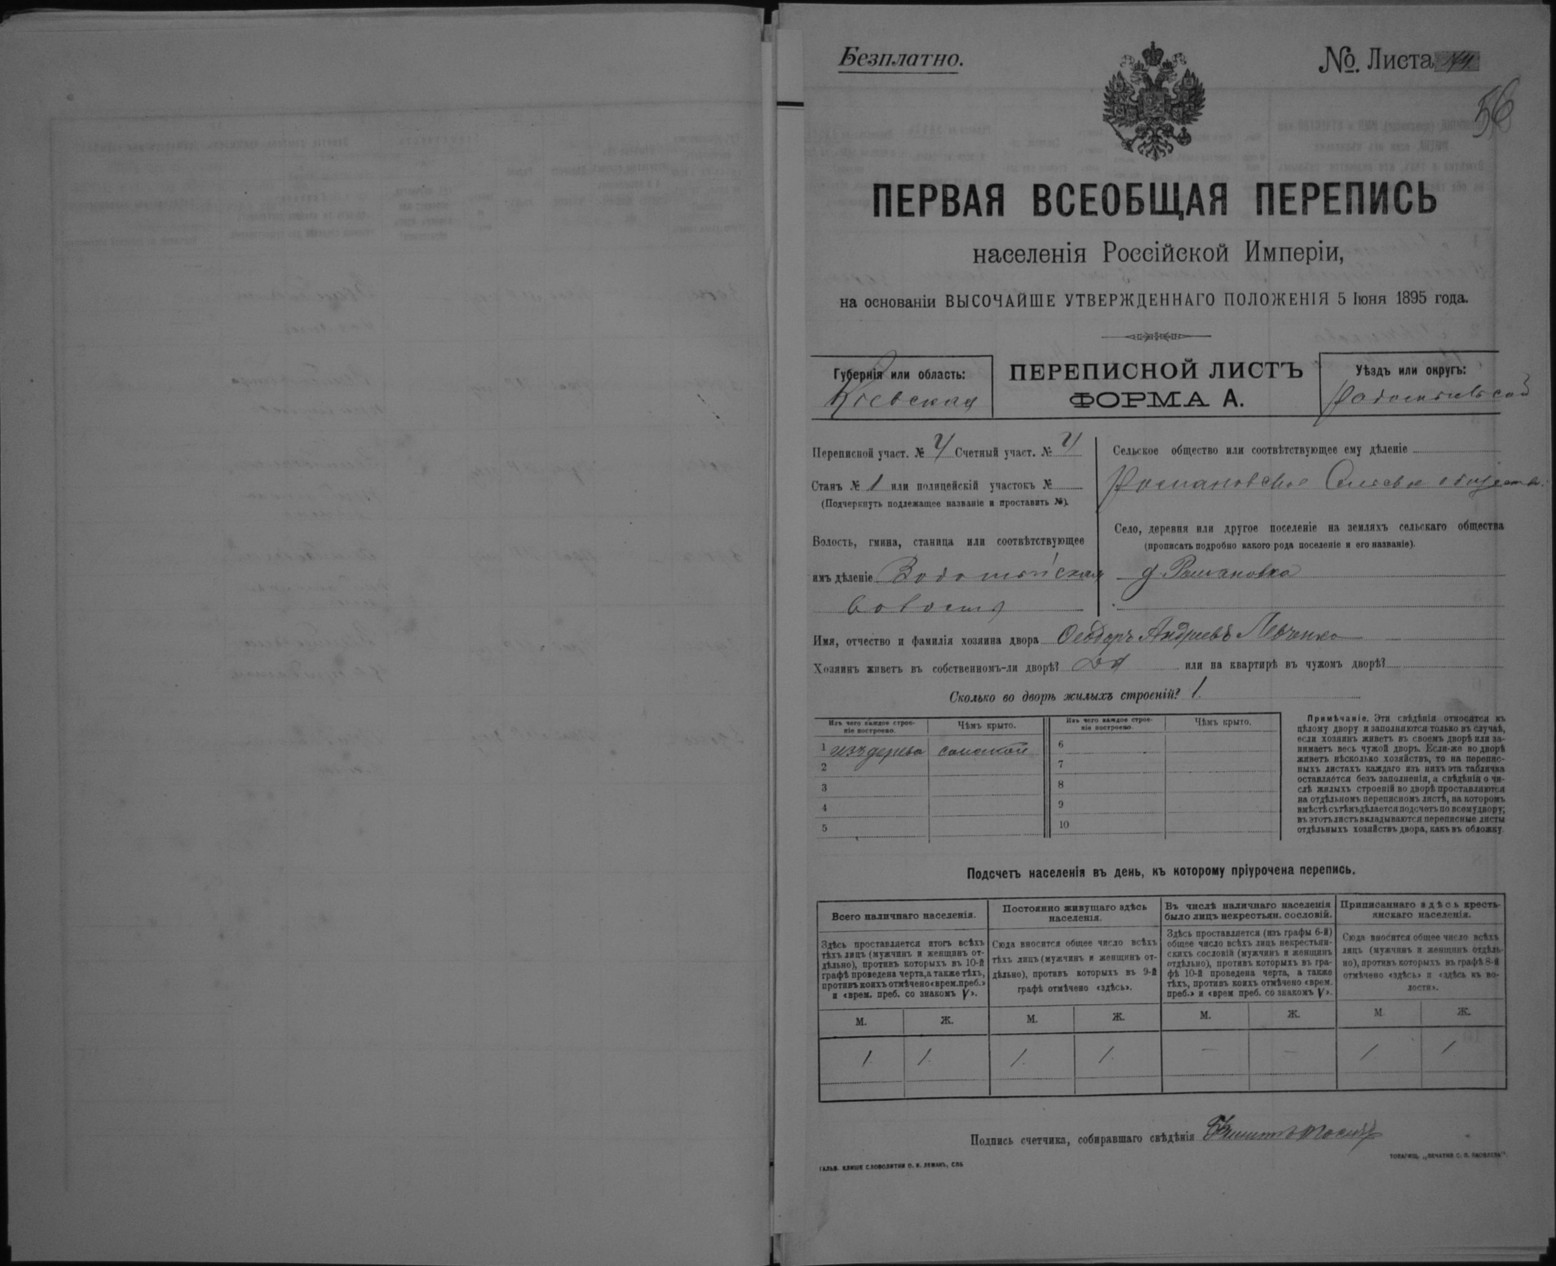 Безплатно.
№. Листа
56
ПЕРВАЯ ВСЕОБЩАЯ ПЕРЕПИСЬ
населенія Россійской Имперіи,
на основаніи ВЫСОЧАЙШЕ УТВЕРЖДЕННАГО ПОЛОЖЕНІЯ 5 Іюня 1895 года.
Губернія или область:
Кіевская
ПЕРЕПИСНОЙ ЛИСТЪ
ФОРМА А.
Уѣздъ или округъ:
Радомысльскій
Переписной участ. № 4 Счетный участ. № 4
Станъ № 1 или полицейскій участокъ №
(Подчеркнуть подлежащее названіе и проставить №).
Волость, гмина, станица или соотвѣтствующее
имъ дѣленіе
волость
Сельское общество или соотвѣтствующее ему дѣленіе
Романовское Сельское общество
Село, деревня или другое поселеніе на земляхъ сельскаго общества
(прописать подробно какого рода поселеніе и его названіе).
д Романовка
Имя, отчество и фамилія хозяина двора Ѳеодоръ Андреевъ Левченко
Хозяинъ живетъ въ собственномъ-ли дворѣ? Да или на квартирѣ въ чужомъ дворѣ?
Сколько во дворѣ жилыхъ строеній? 1
Изъ чего каждое строеніе построено. Чѣмъ крыто. Изъ чего каждое строеніе построено. Чѣмъ крыто.
1 изъ дерева соломой 6
2 7
3 8
4 9
5 10
Примѣчаніе. Эти свѣдѣнія относятся къ
цѣлому двору и заполняются только въ случаѣ,
если хозяинъ живетъ въ своемъ дворѣ или за-
нимаетъ весь чужой дворъ. Если-же во дворѣ
живетъ нѣсколько хозяйствъ, то на перепис-
ныхъ листахъ каждаго изъ нихъ эта табличка
оставляется безъ заполненія, а свѣдѣнія о чи-
слѣ жилыхъ строеній во дворѣ проставляются
на отдѣльномъ переписномъ листѣ, на которомъ
вмѣстѣ съ тѣмъ дѣлается подсчетъ по всему двору;
въ этотъ листъ вкладываются переписные листы
отдѣльныхъ хозяйствъ двора, какъ въ обложку.
Подсчетъ населенія въ день, къ которому пріурочена перепись.
Всего наличнаго населенія.
Здѣсь проставляется итогъ всѣхъ
тѣхъ лицъ (мужчинъ и женщинъ от-
дѣльно), противъ которыхъ въ 10-й
графѣ проведена черта, а также тѣхъ,
противъ коихъ отмѣчено «врем. преб.»
и «врем. преб. со знакомъ V».
Постоянно живущаго здѣсь
населенія.
Сюда вносится общее число всѣхъ
тѣхъ лицъ (мужчинъ и женщинъ от-
дѣльно), противъ которыхъ въ 9-й
графѣ отмѣчено «здѣсь».
Въ числѣ наличнаго населенія
было лицъ некрестьян. сословій.
Здѣсь проставляется (изъ графы 6-й)
общее число всѣхъ лицъ некрестьян-
скихъ сословій (мужчинъ и женщинъ
отдѣльно), противъ которыхъ въ гра-
фѣ 10-й проведена черта, а также
тѣхъ, противъ коихъ отмѣчено «врем.
преб.» и «врем преб. со знакомъ V».
Приписаннаго здѣсь кресть-
янскаго населенія.
Сюда вносится общее число всѣхъ
лицъ (мужчинъ и женщинъ отдѣль-
но), противъ которыхъ въ графѣ 8-й
отмѣчено «здѣсь» и «здѣсь въ во-
лости».
М. Ж. М. Ж. М. Ж. М. Ж.
1 1 1 1 — — 1 1
Подпись счетчика, собиравшаго свѣдѣнія